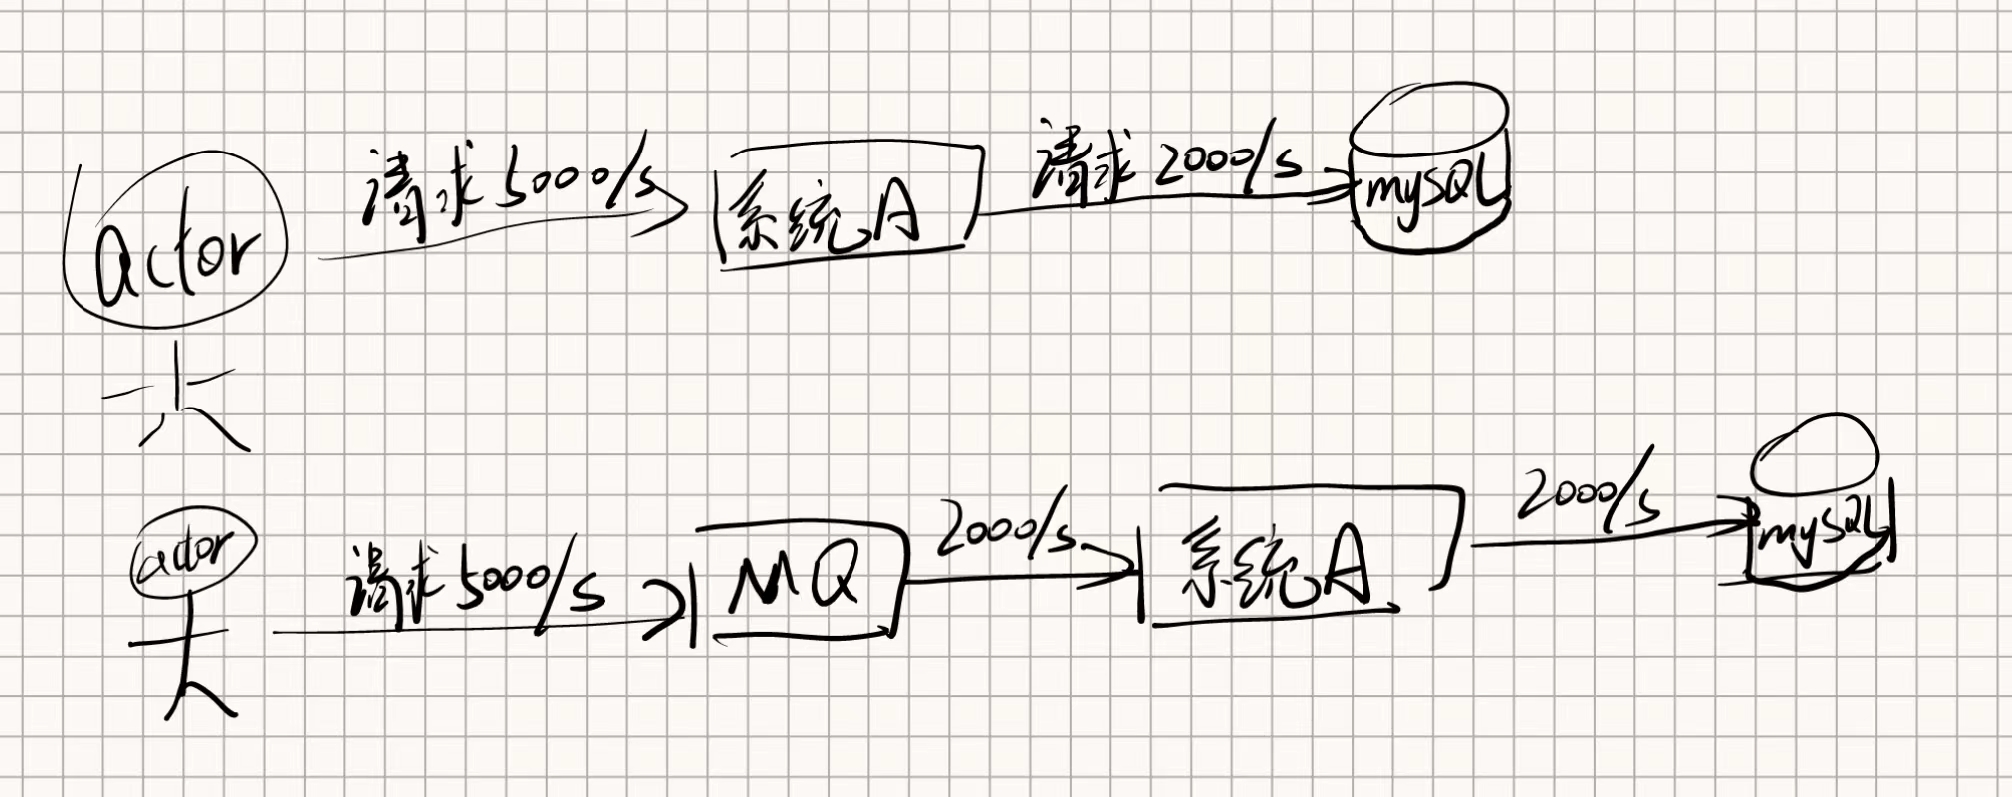 actor 请求 5000/s 系统A 请求 2000/s mySQL
actor 请求 5000/s MQ 2000/s 系统A 2000/s mySQL